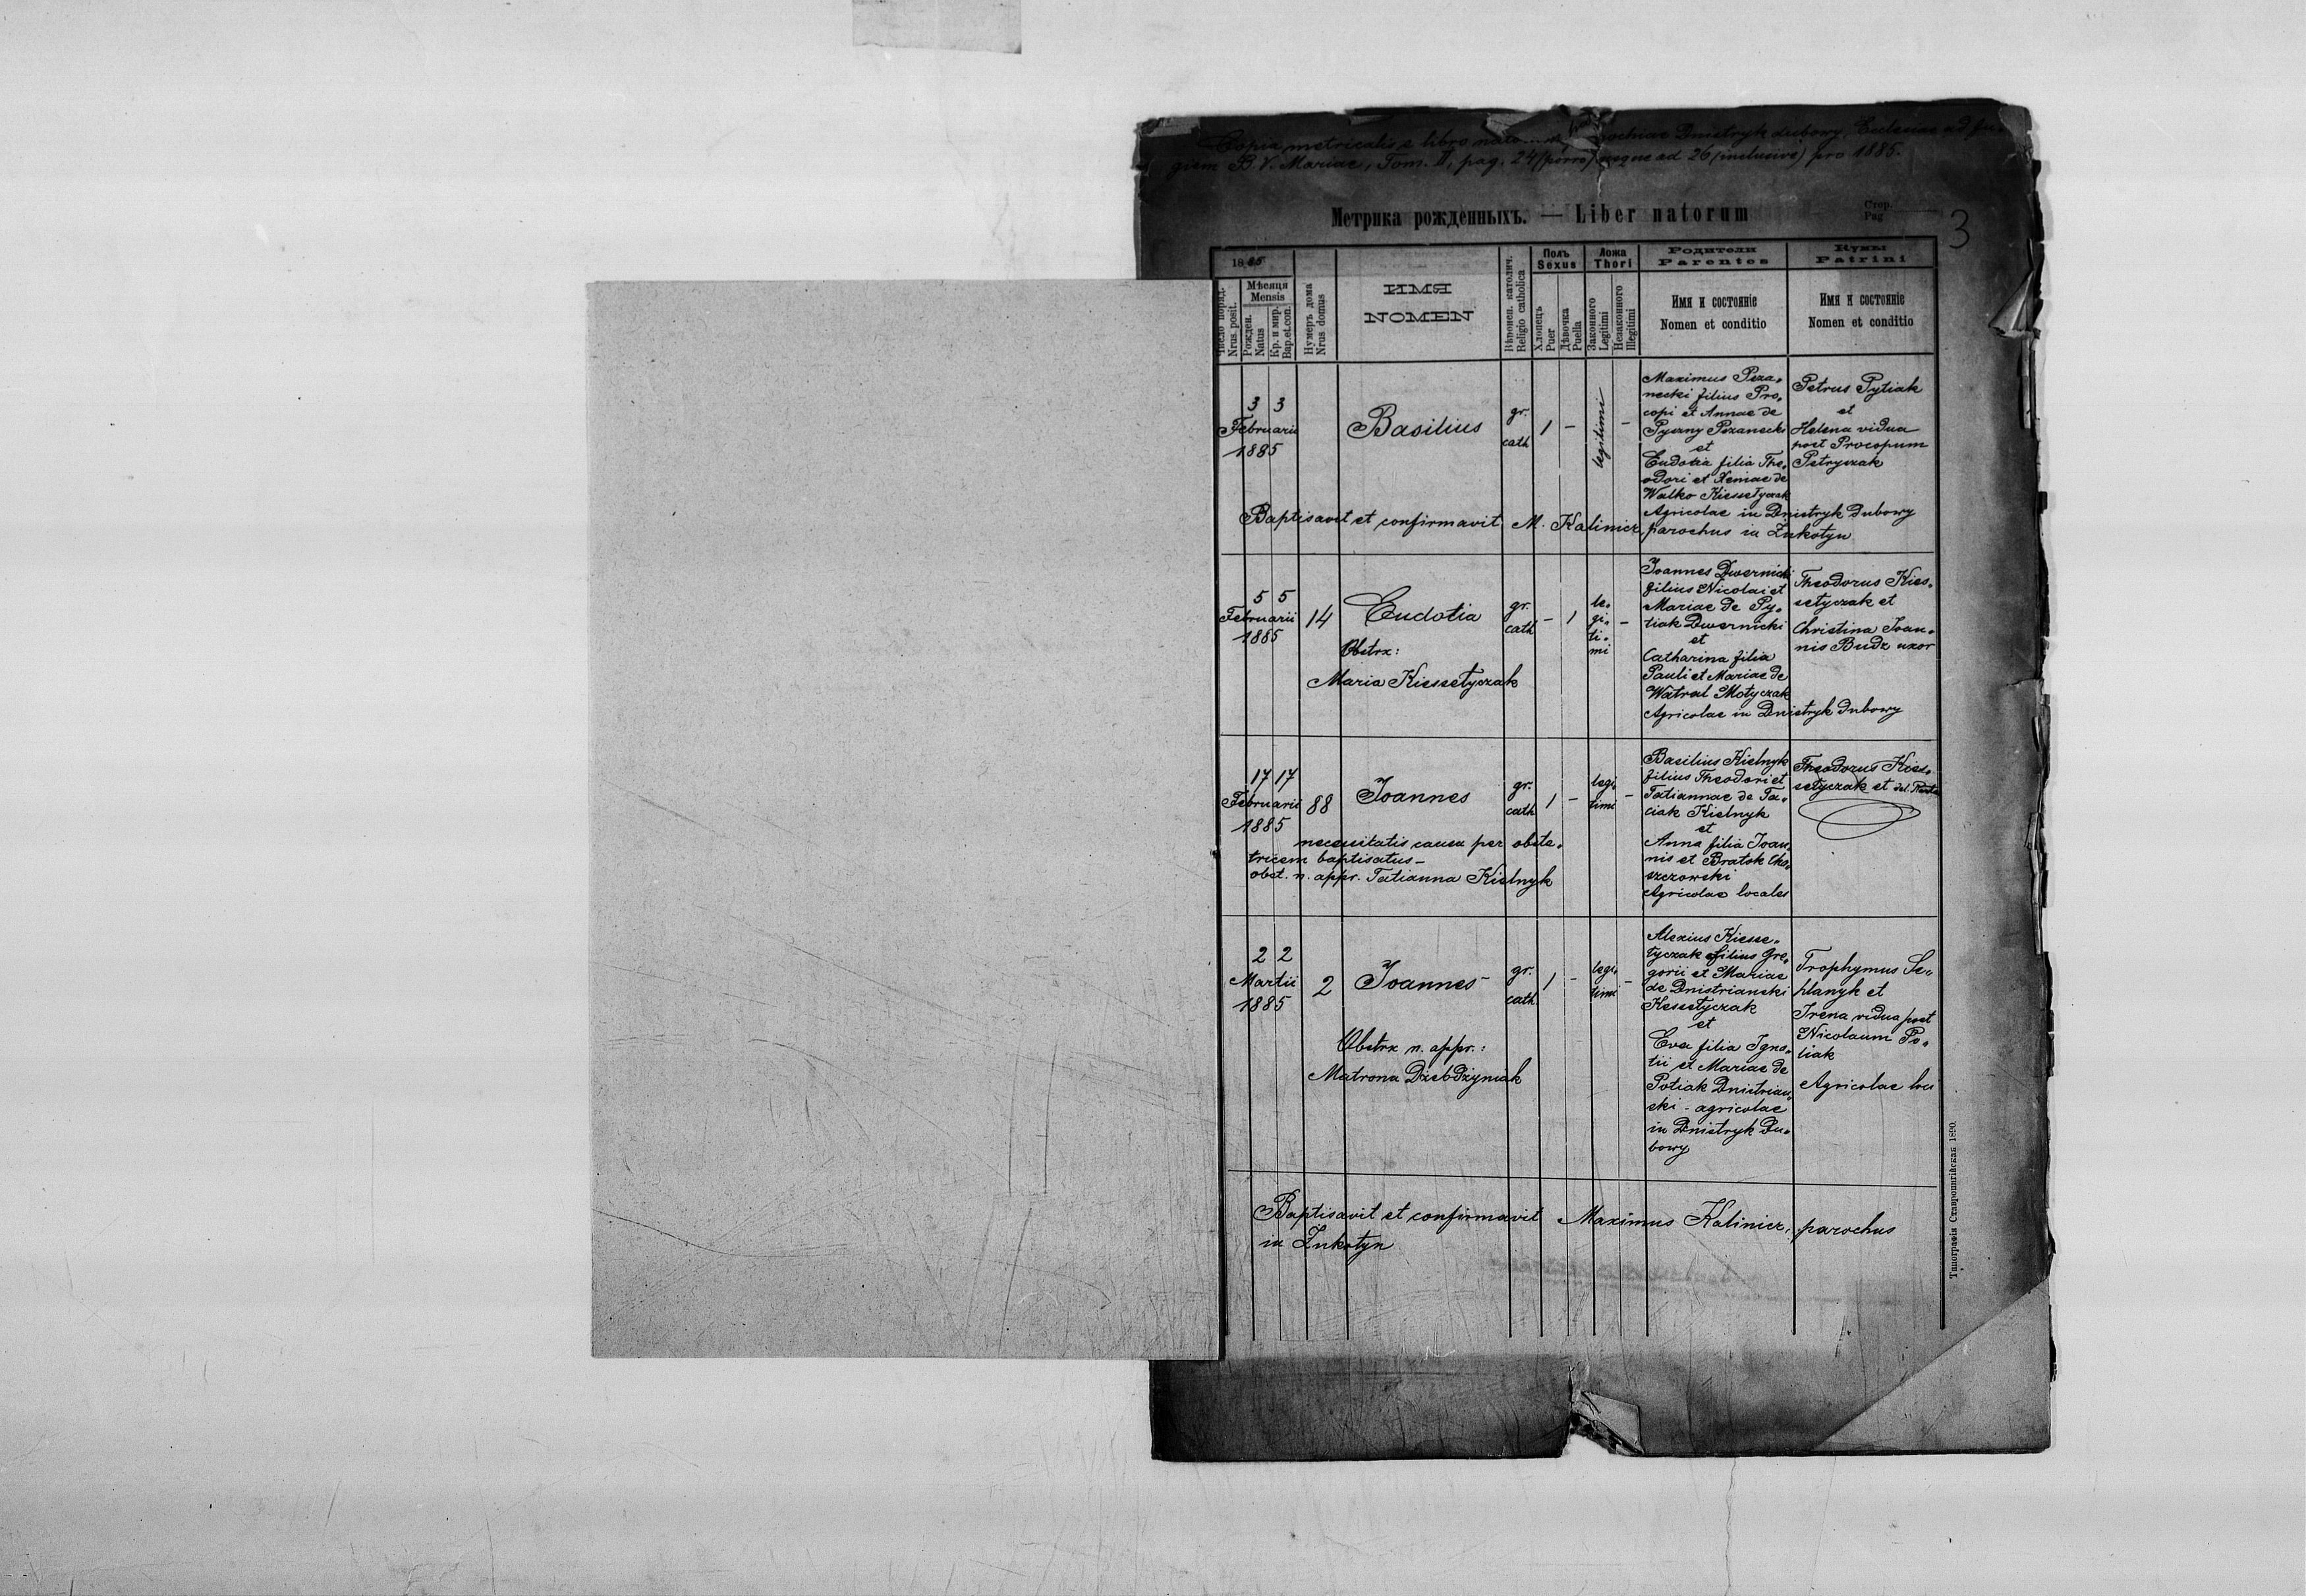 Copia metricalis e libro natorum parochiae Dnistryk dubowy, Ecclesiae ad
giem B. V. Mariae, Tom. II, pag. 24 (porro) usque ad 26 (inclusive) pro 1885.
Метрика рожденныхъ. — Liber natorum
Стор.
Pag
3
1885
Число поряд.
Nrus. posit.
Мѣсяця
Mensis
Рожден.
Natus
Кр. и мир.
Bap. et. con.
Нумеръ дома
Nrus domus
ИМЯ
NOMEN
Вѣроисп. католич.
Religio catholica
Полъ
Sexus
Хлопецъ
Puer
Дѣвочка
Puella
Ложа
Thori
Законного
Legitimi
Незаконного
Illegitimi
Родители
Parentes
Имя и состояніе
Nomen et conditio
Кумы
Patrini
Имя и состояніе
Nomen et conditio
3 3
Februarii
1885
Basilius
gr.
cath
1 –
legitimi
–
Maximus Pza-
necki filius Pro-
copi et Annae de
Pyczny Pzanecki
et
Eudotia filia The-
odori et Xeniae de
Walko Kiessetyczak
Agricolae in Dnistryk Dubowy
Petrus Pytiak
et
Helena vidua
post Procopum
Petryczak
Baptisavit et confirmavit M. Kalinicz, parochus in Żukotyn
5 5
Februarii
1885
14
Eudotia
gr.
cath
– 1
le-
gi-
ti-
mi
–
Obstrx:
Maria Kiessetyczak
Joannes Dwernicki
filius Nicolai et
Mariae de Py-
tiak Dwernicki
et
Catharina filia
Pauli et Mariae de
Watral Motyczak
Agricolae in Dnistryk Dubowy
Theodorus Kies-
setyczak et
Christina Joan-
nis Budz uxor
17 17
Februarii
1885
88
Joannes
gr.
cath
1 –
legi-
timi
–
necessitatis causa per obste-
tricem baptisatus –
obst. n. appr. Tatianna Kielnyk
Basilius Kielnyk
filius Theodori et
Tatiannae de Ta-
ciak Kielnyk
et
Anna filia Joan-
nis et Bratok Cho-
szczowski
Agricolae locales
Theodorus Kies-
setyczak et
2 2
Martii
1885
2
Joannes
gr.
cath
1 –
legi-
timi
–
Obstrx n. appr.:
Matrona Dzebdżyniak
Alexius Kiesse-
tyczak filius Gre-
gorii et Mariae
de Dnistrianski
Kessetyczak
et
Eva filia Igna-
tii et Mariae de
Potiak Dnistrian-
ski – agricolae
in Dnistryk Du-
bowy
Trophymus Se-
planyk et
Irena vidua post
Nicolaum Po-
tiak
Agricolae
Baptisavit et confirmavit Maximus Kalinicz, parochus
in Żukotyn
Типографія Ставропигійская 1890.